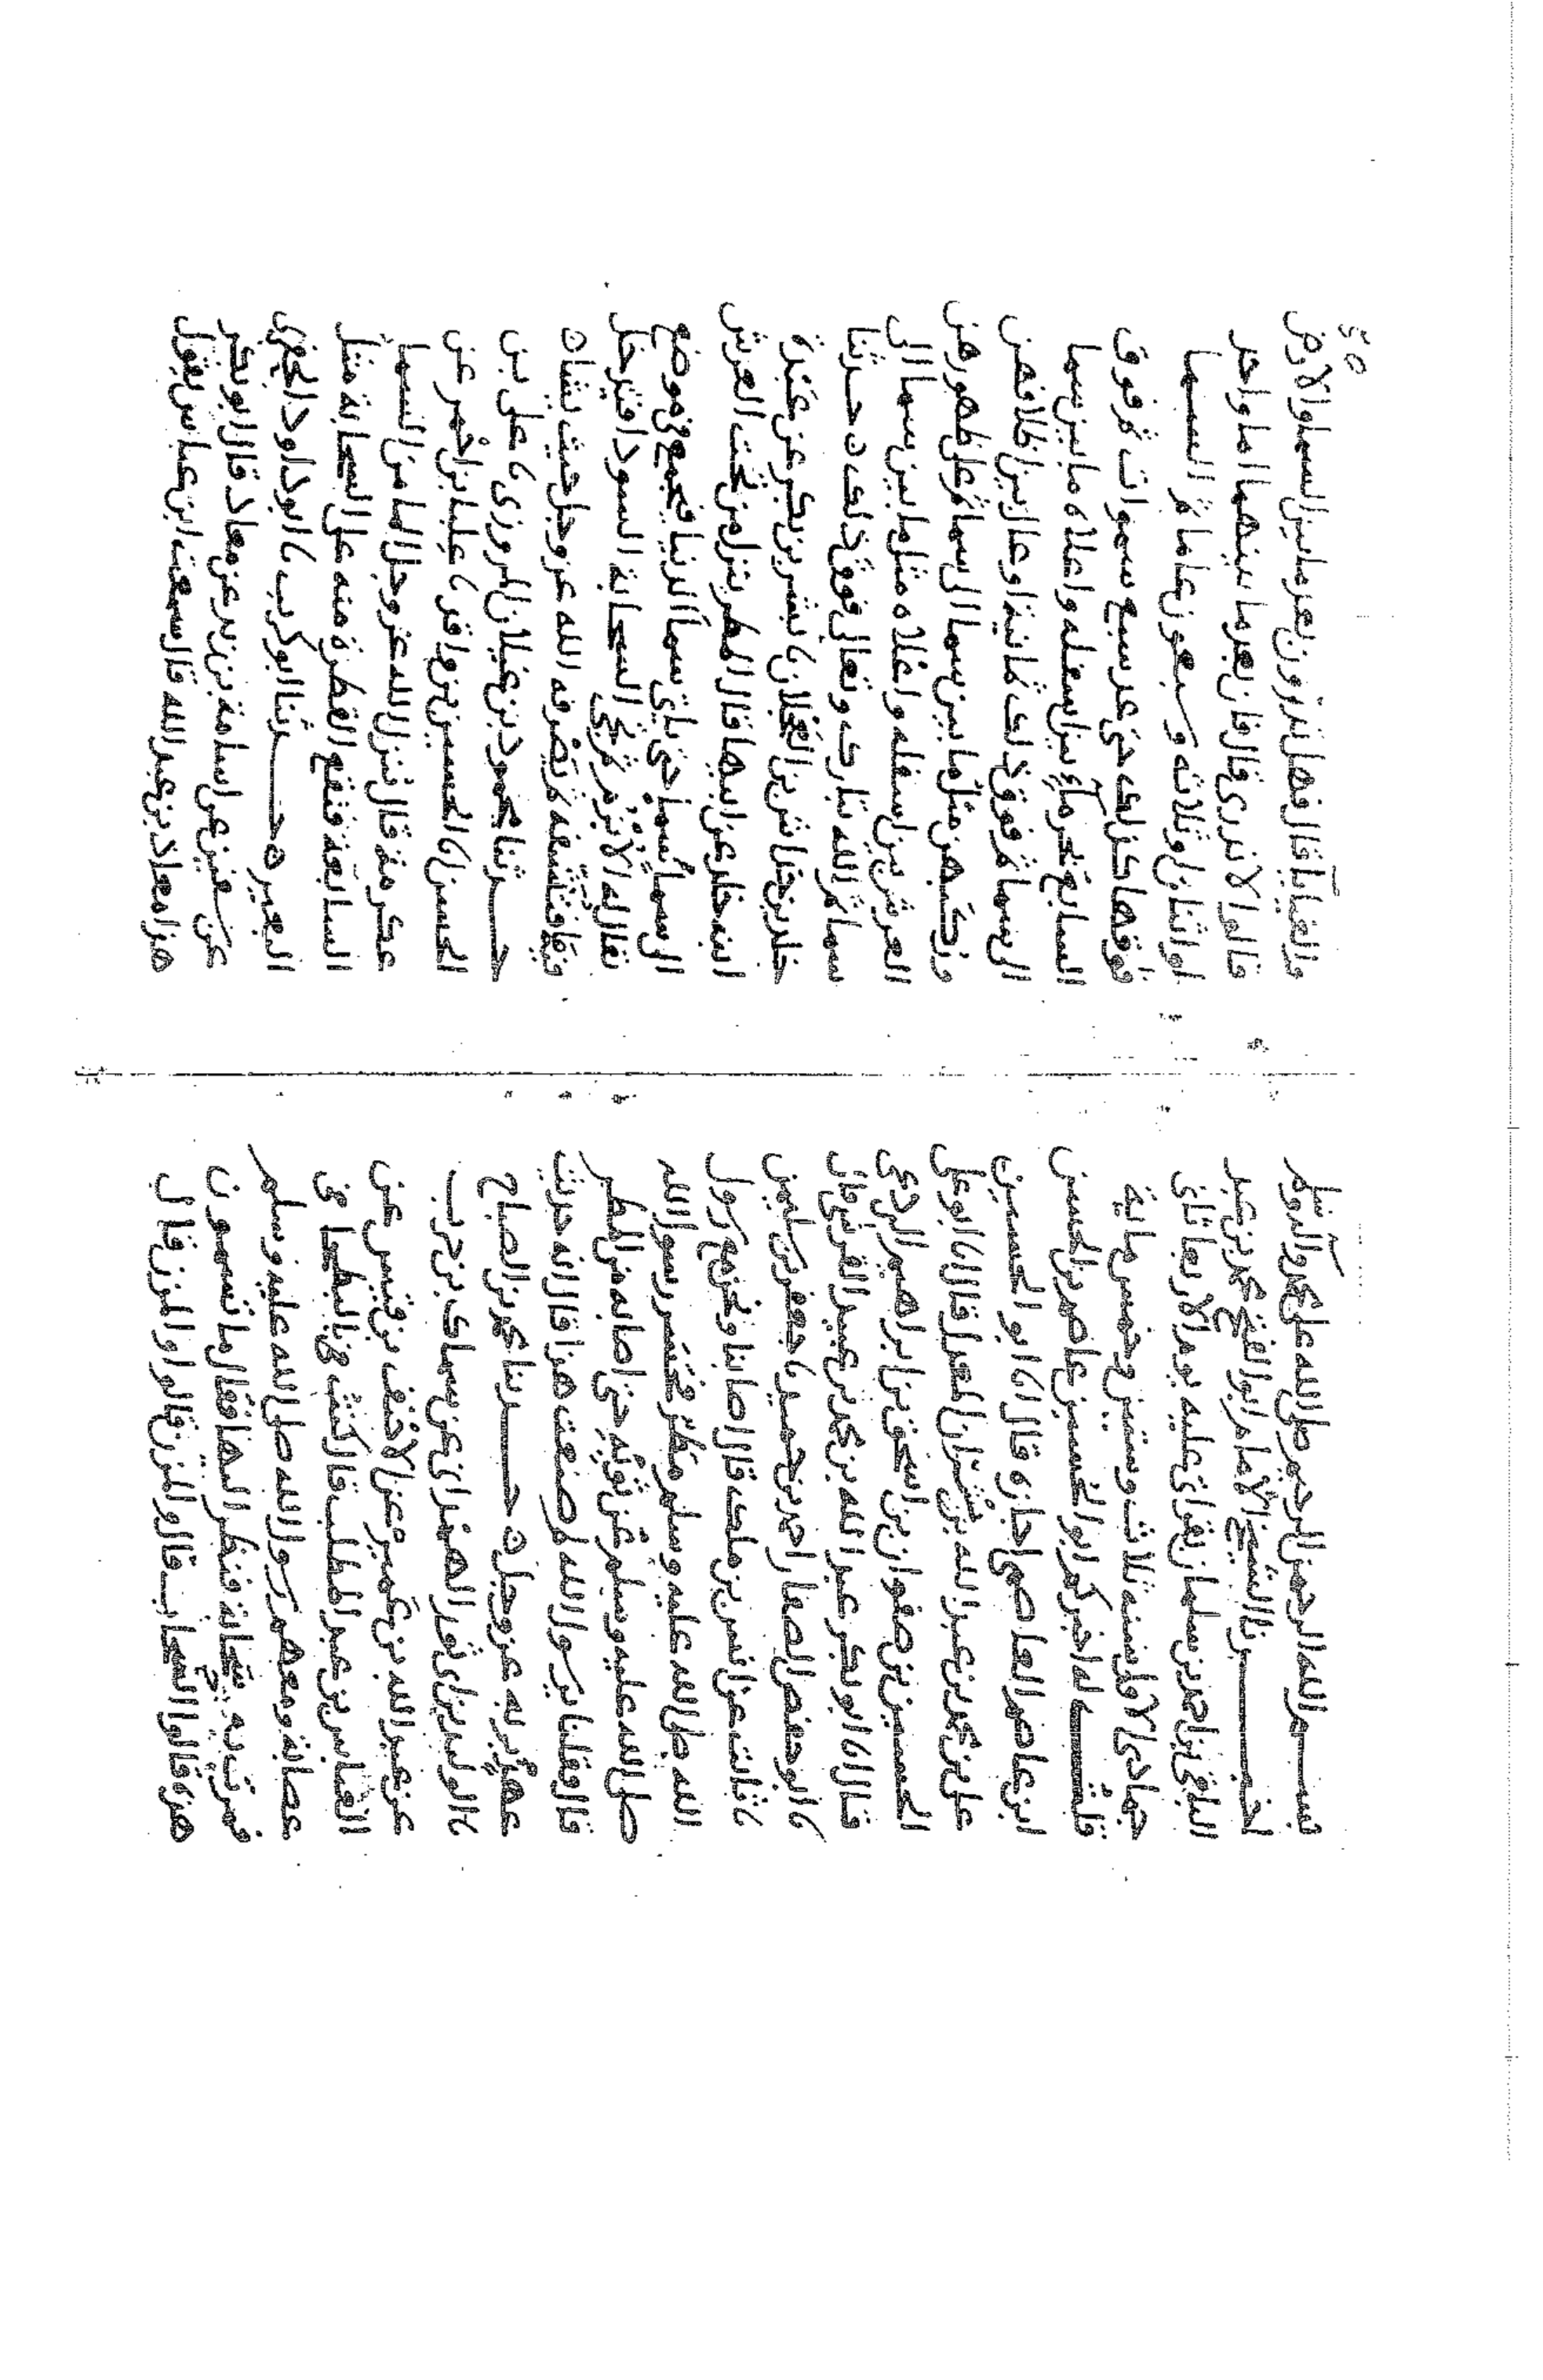 بسم الله الرحمن الرحيم صلى الله على محمد واله وسلم
اخبرنا الشيخ الامام ابو الفتح محمد بن عبد
الباقي بن احمد بن سلمان بقراتي عليه يوم الاربعا ثاني
جمادى الاولى سنة ثلاث وستين وخمس ماية
قلت له اخبركم ابو الحسين عاصم بن الحسن
ابن عاصم العاصمي اجازة قال انا ابو الحسين
علي بن محمد بن عبد الله بن بشران المعدل قال انا ابو علي
الحسين بن صفوان بن اسحق بن ابراهيم البردعي
قال انا ابو بكر عبد الله بن محمد بن عبيد القرشي قال
نا ابو حفص الصفار احمد بن حميد نا جعفر بن سليمن
نا ثابت عن انس بن ملك قال اصابنا ونحن مع رسول
الله صلى الله عليه وسلم مطر فحسر رسول الله
صلى الله عليه وسلم عن ثوبه حتى اصابه من المطر
قال وقلنا يرسول الله لم صنعت هذا قال انه حديث
عهد بربه عز وجل ه حدثنا محمد بن الصباح
نا الوليد بن ابي ثور الهمداني عن سماك بن حرب
عن عبد الله بن عميرة عن الاحنف بن قيس عن
العباس بن عبد المطلب قال كنت في البطحا في
عصابة ومعهم رسول الله صلى الله عليه وسلم
فمرت به سحابة فنظر اليها فقال ما تسمون
هذه قالوا السحاب قال والمزن قالوا والمزن قال
٤٥
والغيايا قال فهل تدرون بعد ما بين السما والارض
قالوا لا ندري قال فان بعد ما بينهما اما واحد
او اثنان او ثلاثه وسبعون عاما ثم السما
فوقها كذلك حتى عد سبع سموات ثم فوق
السابع بحر ماء بين اسفله واعلاه ما بين سما
الى سما ثم فوق ذلك ثمانية اوعال بين اظلافهن
وركبهن مثل ما بين سما الى سما ثم على ظهورهن
العرش بين اسفله واعلاه مثل ما بين سما الى
سما ثم الله تبارك وتعالى فوق ذلك ه حدثنا
خلد بن خداش بن العجلان نا بشر بن بكر عن عبدة
ابنة خلد عن ابيها قال المطر ينزل من تحت العرش
الى سما سما حتى ياتي سما الدنيا فيجمع في موضع
يقال له الابزم ثم تجي السحابة السودا فتدخل
ثم يصرفه الله عز وجل حيث يشا ه
حدثنا محمود بن غيلان المروزي نا علي بن
الحسن نا الحسين بن واقد نا عليا بن احمر عن
عكرمة قال ينزل الله عز وجل الما من السما
السابعة فتقع القطرة منه على السحابة مثل
البعير ه حدثنا ابو كريب نا ابو داود الحفري
عن سفين عن سلمة بن عن معاذ قال ابو بكر
هذا معاذ بن عبد الله قال سمعت ابن عباس يقول